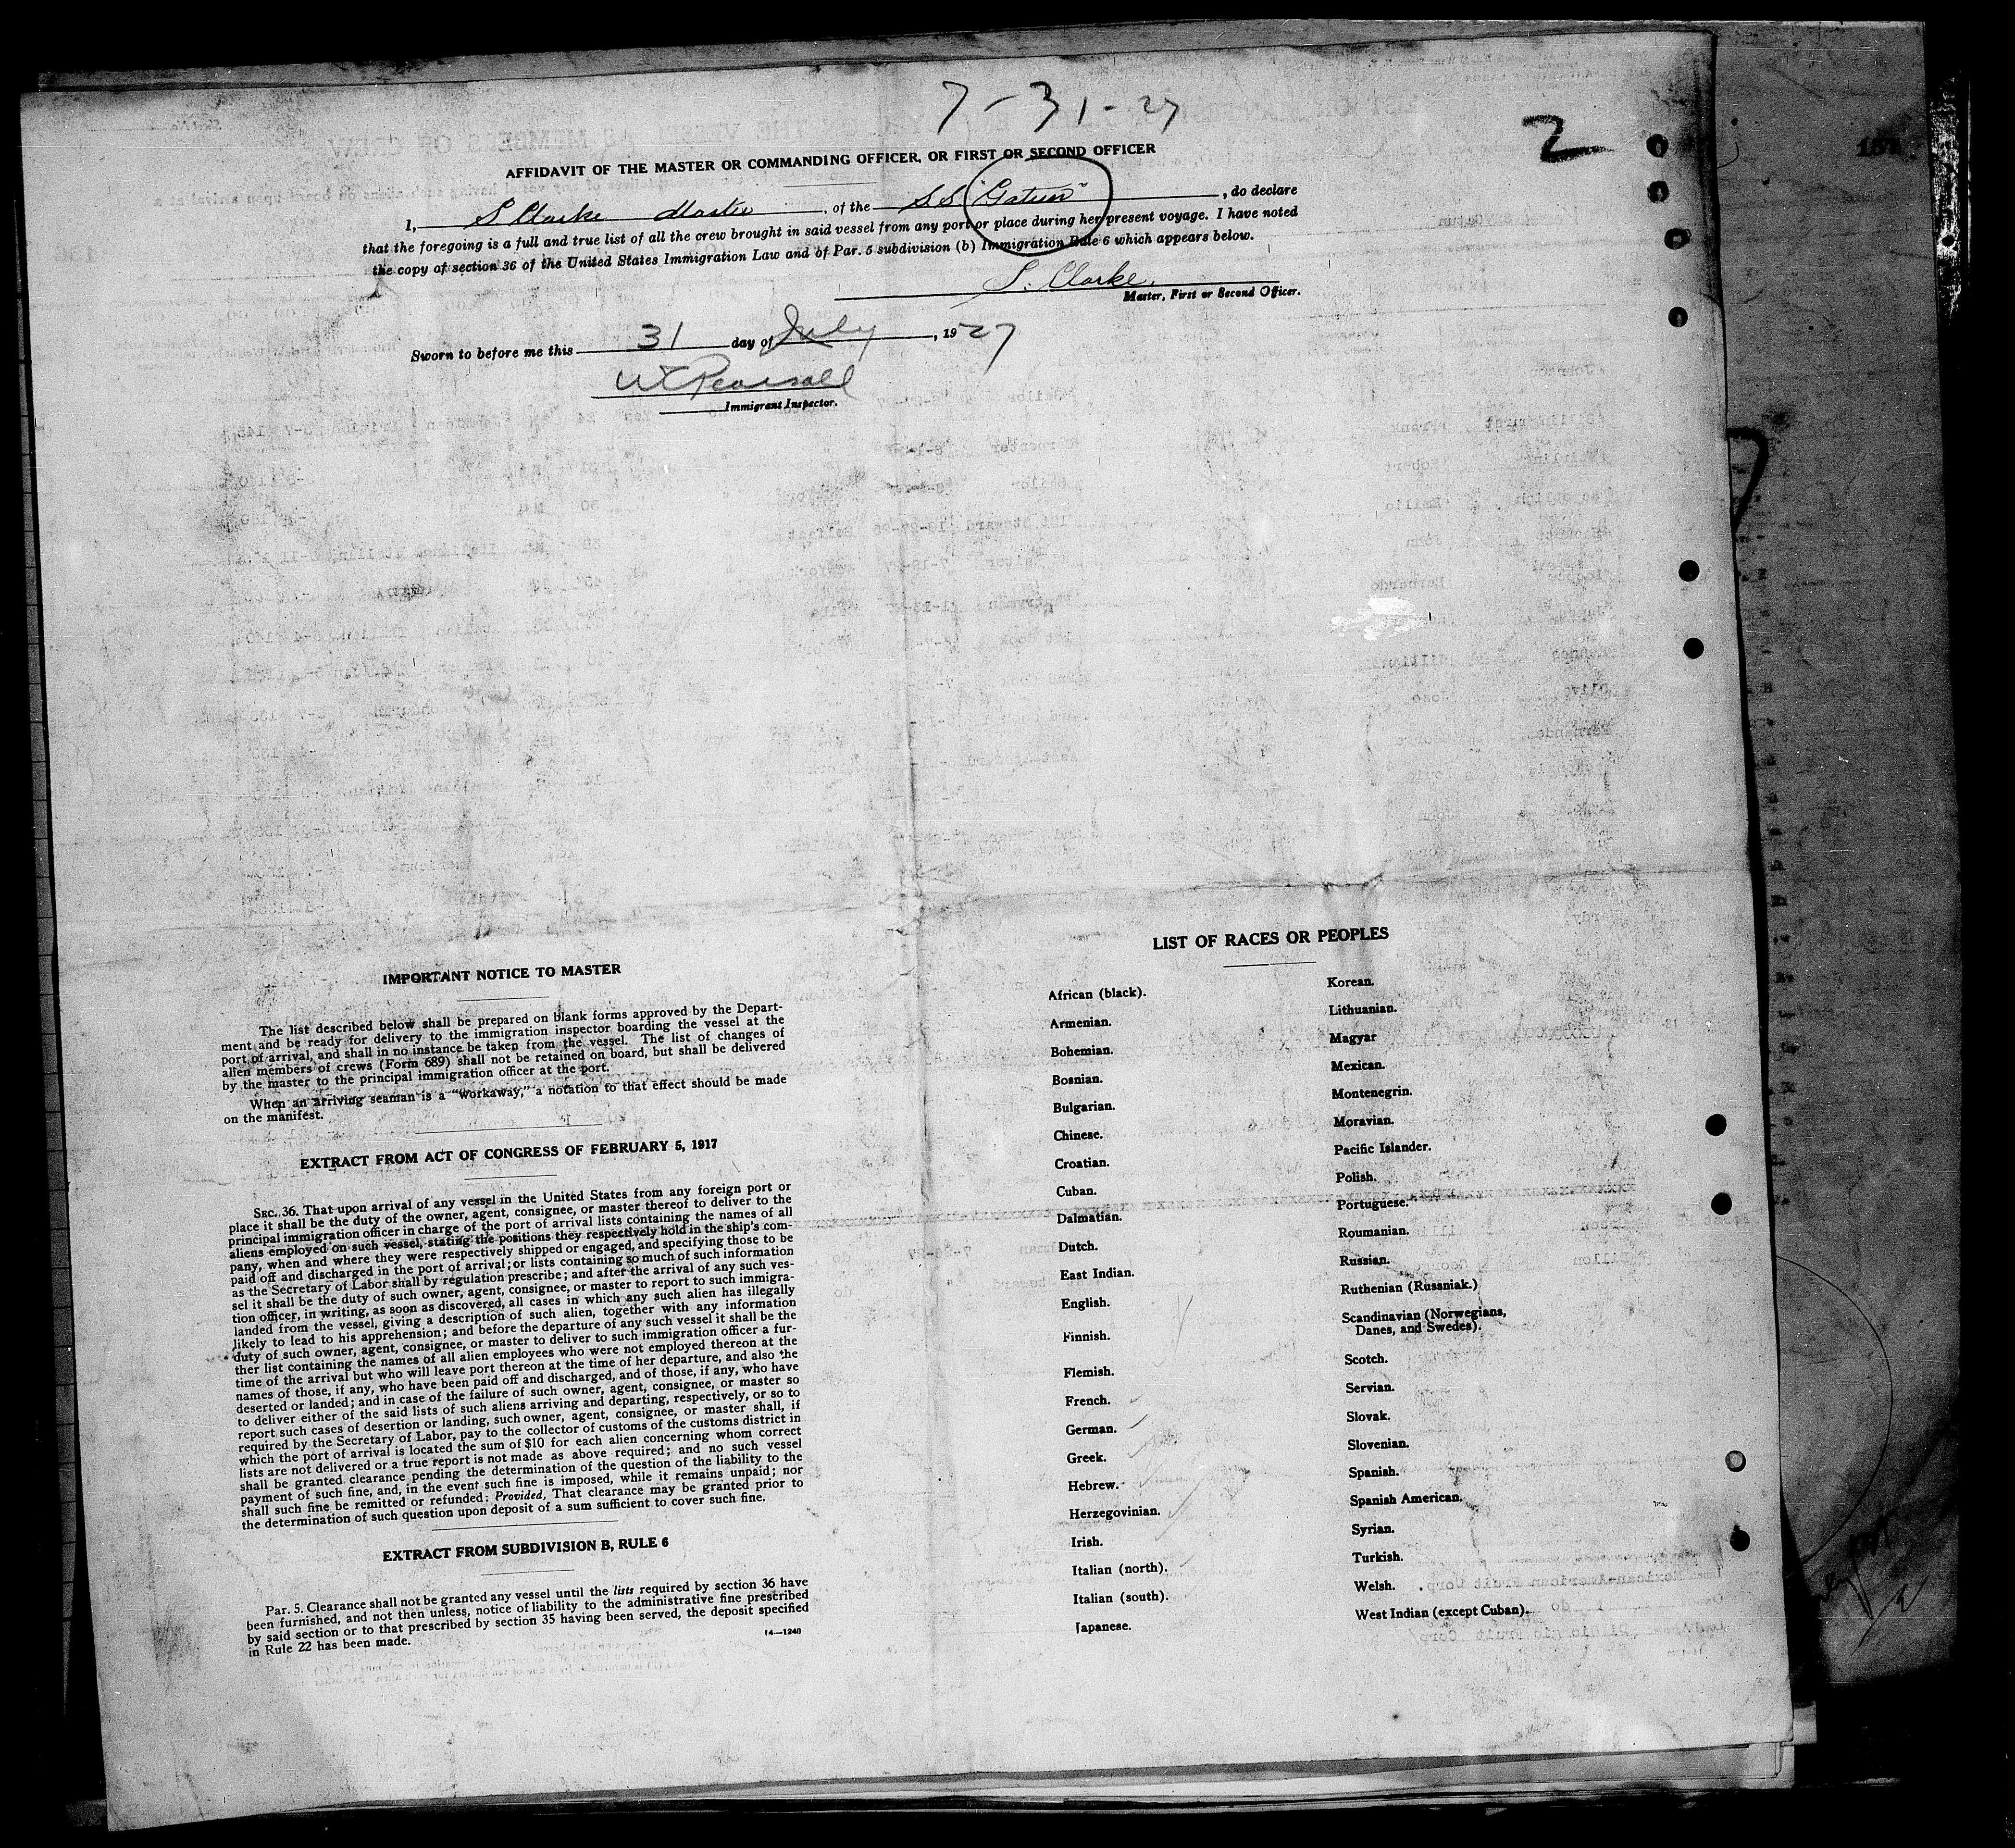 7-31-27
2
AFFIDAVIT OF THE MASTER OR COMMANDING OFFICER, OR FIRST OR SECOND OFFICER
I, S Clarke Master, of the SS "Gatun", do declare
that the foregoing is a full and true list of all the crew brought in said vessel from any port or place during her present voyage. I have noted
the copy of section 36 of the United States Immigration Law and of Par. 5 subdivision (b) Immigration Rule 6 which appears below.
S. Clarke.
Master, First or Second Officer.
Sworn to before me this 31 day of July, 1927
Immigrant Inspector.
IMPORTANT NOTICE TO MASTER
The list described below shall be prepared on blank forms approved by the Depart-
ment and be ready for delivery to the immigration inspector boarding the vessel at the
port of arrival, and shall in no instance be taken from the vessel. The list of changes of
alien members of crews (Form 689) shall not be retained on board, but shall be delivered
by the master to the principal immigration officer at the port.
When an arriving seaman is a "workaway," a notation to that effect should be made
on the manifest.
EXTRACT FROM ACT OF CONGRESS OF FEBRUARY 5, 1917
SEC. 36. That upon arrival of any vessel in the United States from any foreign port or
place it shall be the duty of the owner, agent, consignee, or master thereof to deliver to the
principal immigration officer in charge of the port of arrival lists containing the names of all
aliens employed on such vessel, stating the positions they respectively hold in the ship's com-
pany, when and where they were respectively shipped or engaged, and specifying those to be
paid off and discharged in the port of arrival; or lists containing so much of such information
as the Secretary of Labor shall by regulation prescribe; and after the arrival of any such ves-
sel it shall be the duty of such owner, agent, consignee, or master to report to such immigra-
tion officer, in writing, as soon as discovered, all cases in which any such alien has illegally
landed from the vessel, giving a description of such alien, together with any information
likely to lead to his apprehension; and before the departure of any such vessel it shall be the
duty of such owner, agent, consignee, or master to deliver to such immigration officer a fur-
ther list containing the names of all alien employees who were not employed thereon at the
time of the arrival but who will leave port thereon at the time of her departure, and also the
names of those, if any, who have been paid off and discharged, and of those, if any, who have
deserted or landed; and in case of the failure of such owner, agent, consignee, or master so
to deliver either of the said lists of such aliens arriving and departing, respectively, or so to
report such cases of desertion or landing, such owner, agent, consignee, or master shall, if
required by the Secretary of Labor, pay to the collector of customs of the customs district in
which the port of arrival is located the sum of $10 for each alien concerning whom correct
lists are not delivered or a true report is not made as above required; and no such vessel
shall be granted clearance pending the determination of the question of the liability to the
payment of such fine, and, in the event such fine is imposed, while it remains unpaid; nor
shall such fine be remitted or refunded: Provided, That clearance may be granted prior to
the determination of such question upon deposit of a sum sufficient to cover such fine.
EXTRACT FROM SUBDIVISION B, RULE 6
Par. 5. Clearance shall not be granted any vessel until the lists required by section 36 have
been furnished, and not then unless, notice of liability to the administrative fine prescribed
by said section or to that prescribed by section 35 having been served, the deposit specified
in Rule 22 has been made.
14—1240
LIST OF RACES OR PEOPLES
African (black).
Armenian.
Bohemian.
Bosnian.
Bulgarian.
Chinese.
Croatian.
Cuban.
Dalmatian.
Dutch.
East Indian.
English.
Finnish.
Flemish.
French.
German.
Greek.
Hebrew.
Herzegovinian.
Irish.
Italian (north).
Italian (south).
Japanese.
Korean.
Lithuanian.
Magyar
Mexican.
Montenegrin.
Moravian.
Pacific Islander.
Polish.
Portuguese.
Roumanian.
Russian.
Ruthenian (Russniak.)
Scandinavian (Norwegians,
Danes, and Swedes).
Scotch.
Servian.
Slovak.
Slovenian.
Spanish.
Spanish American.
Syrian.
Turkish.
Welsh.
West Indian (except Cuban).